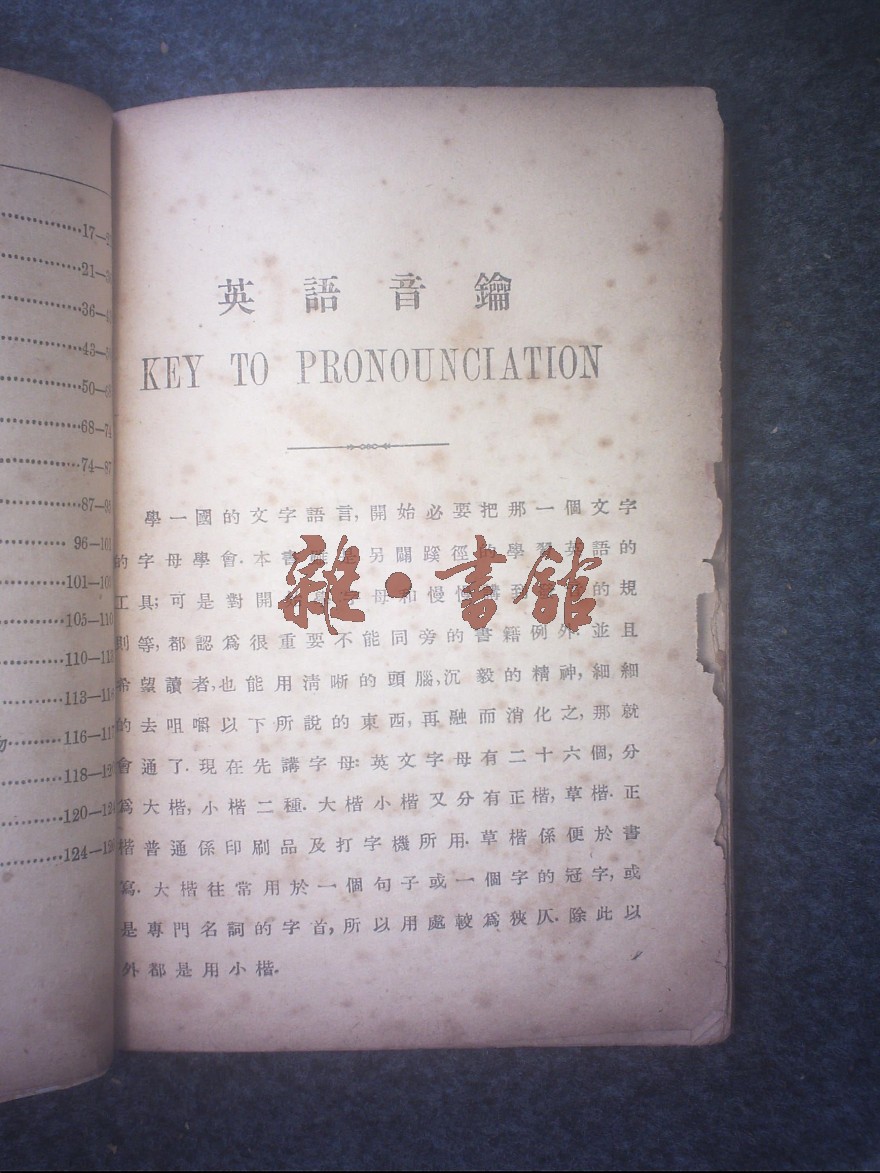 17—2
21—3
36—
43—
50—
68—74
74—87
87—9
96—101
101—10
105—110
110—11
113—11
116—117
118—12
120—12
124—12
英語音鑰
KEY TO PRONOUNCIATION
學一國的文字語言,開始必要把那一個文字
的字母學會.本書雖是另闢蹊徑的學習英語的
工具;可是對開始學字母和慢慢講到的規
則等,都認爲很重要不能同旁的書籍例外.並且
希望讀者,也能用清晰的頭腦、沉毅的精神,細細
的去咀嚼以下所說的東西,再融而消化之,那就
會通了.現在先講字母:英文字母有二十六個,分
爲大楷,小楷二種.大楷小楷又分有正楷,草楷.正
楷普通係印刷品及打字機所用.草楷係便於書
寫.大楷往常用於一個句子或一個字的冠字,或
是專門名詞的字首,所以用處較爲狹仄.除此以
外都是用小楷.
雜·書館